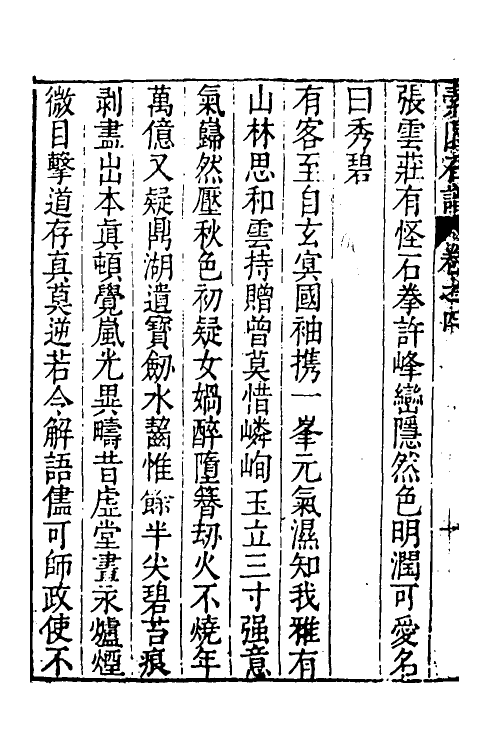 素園石譜 卷之四 十
張雲莊有怪石拳許峰巒隱然色明潤可愛名
曰秀碧
有客至自玄㝠國袖携一峯元氣濕知我雅有
山林思和雲持贈曾莫惜嶙峋玉立三寸强意
氣巋然壓秋色初疑女媧醉墮簪刼火不燒年
萬億又疑鼎湖遺寶劒水齧惟餘半尖碧苔痕
剥盡出本眞頓覺嵐光異疇昔虛堂晝永爐煙
微目擊道存真莫逆若令解語儘可師政使不